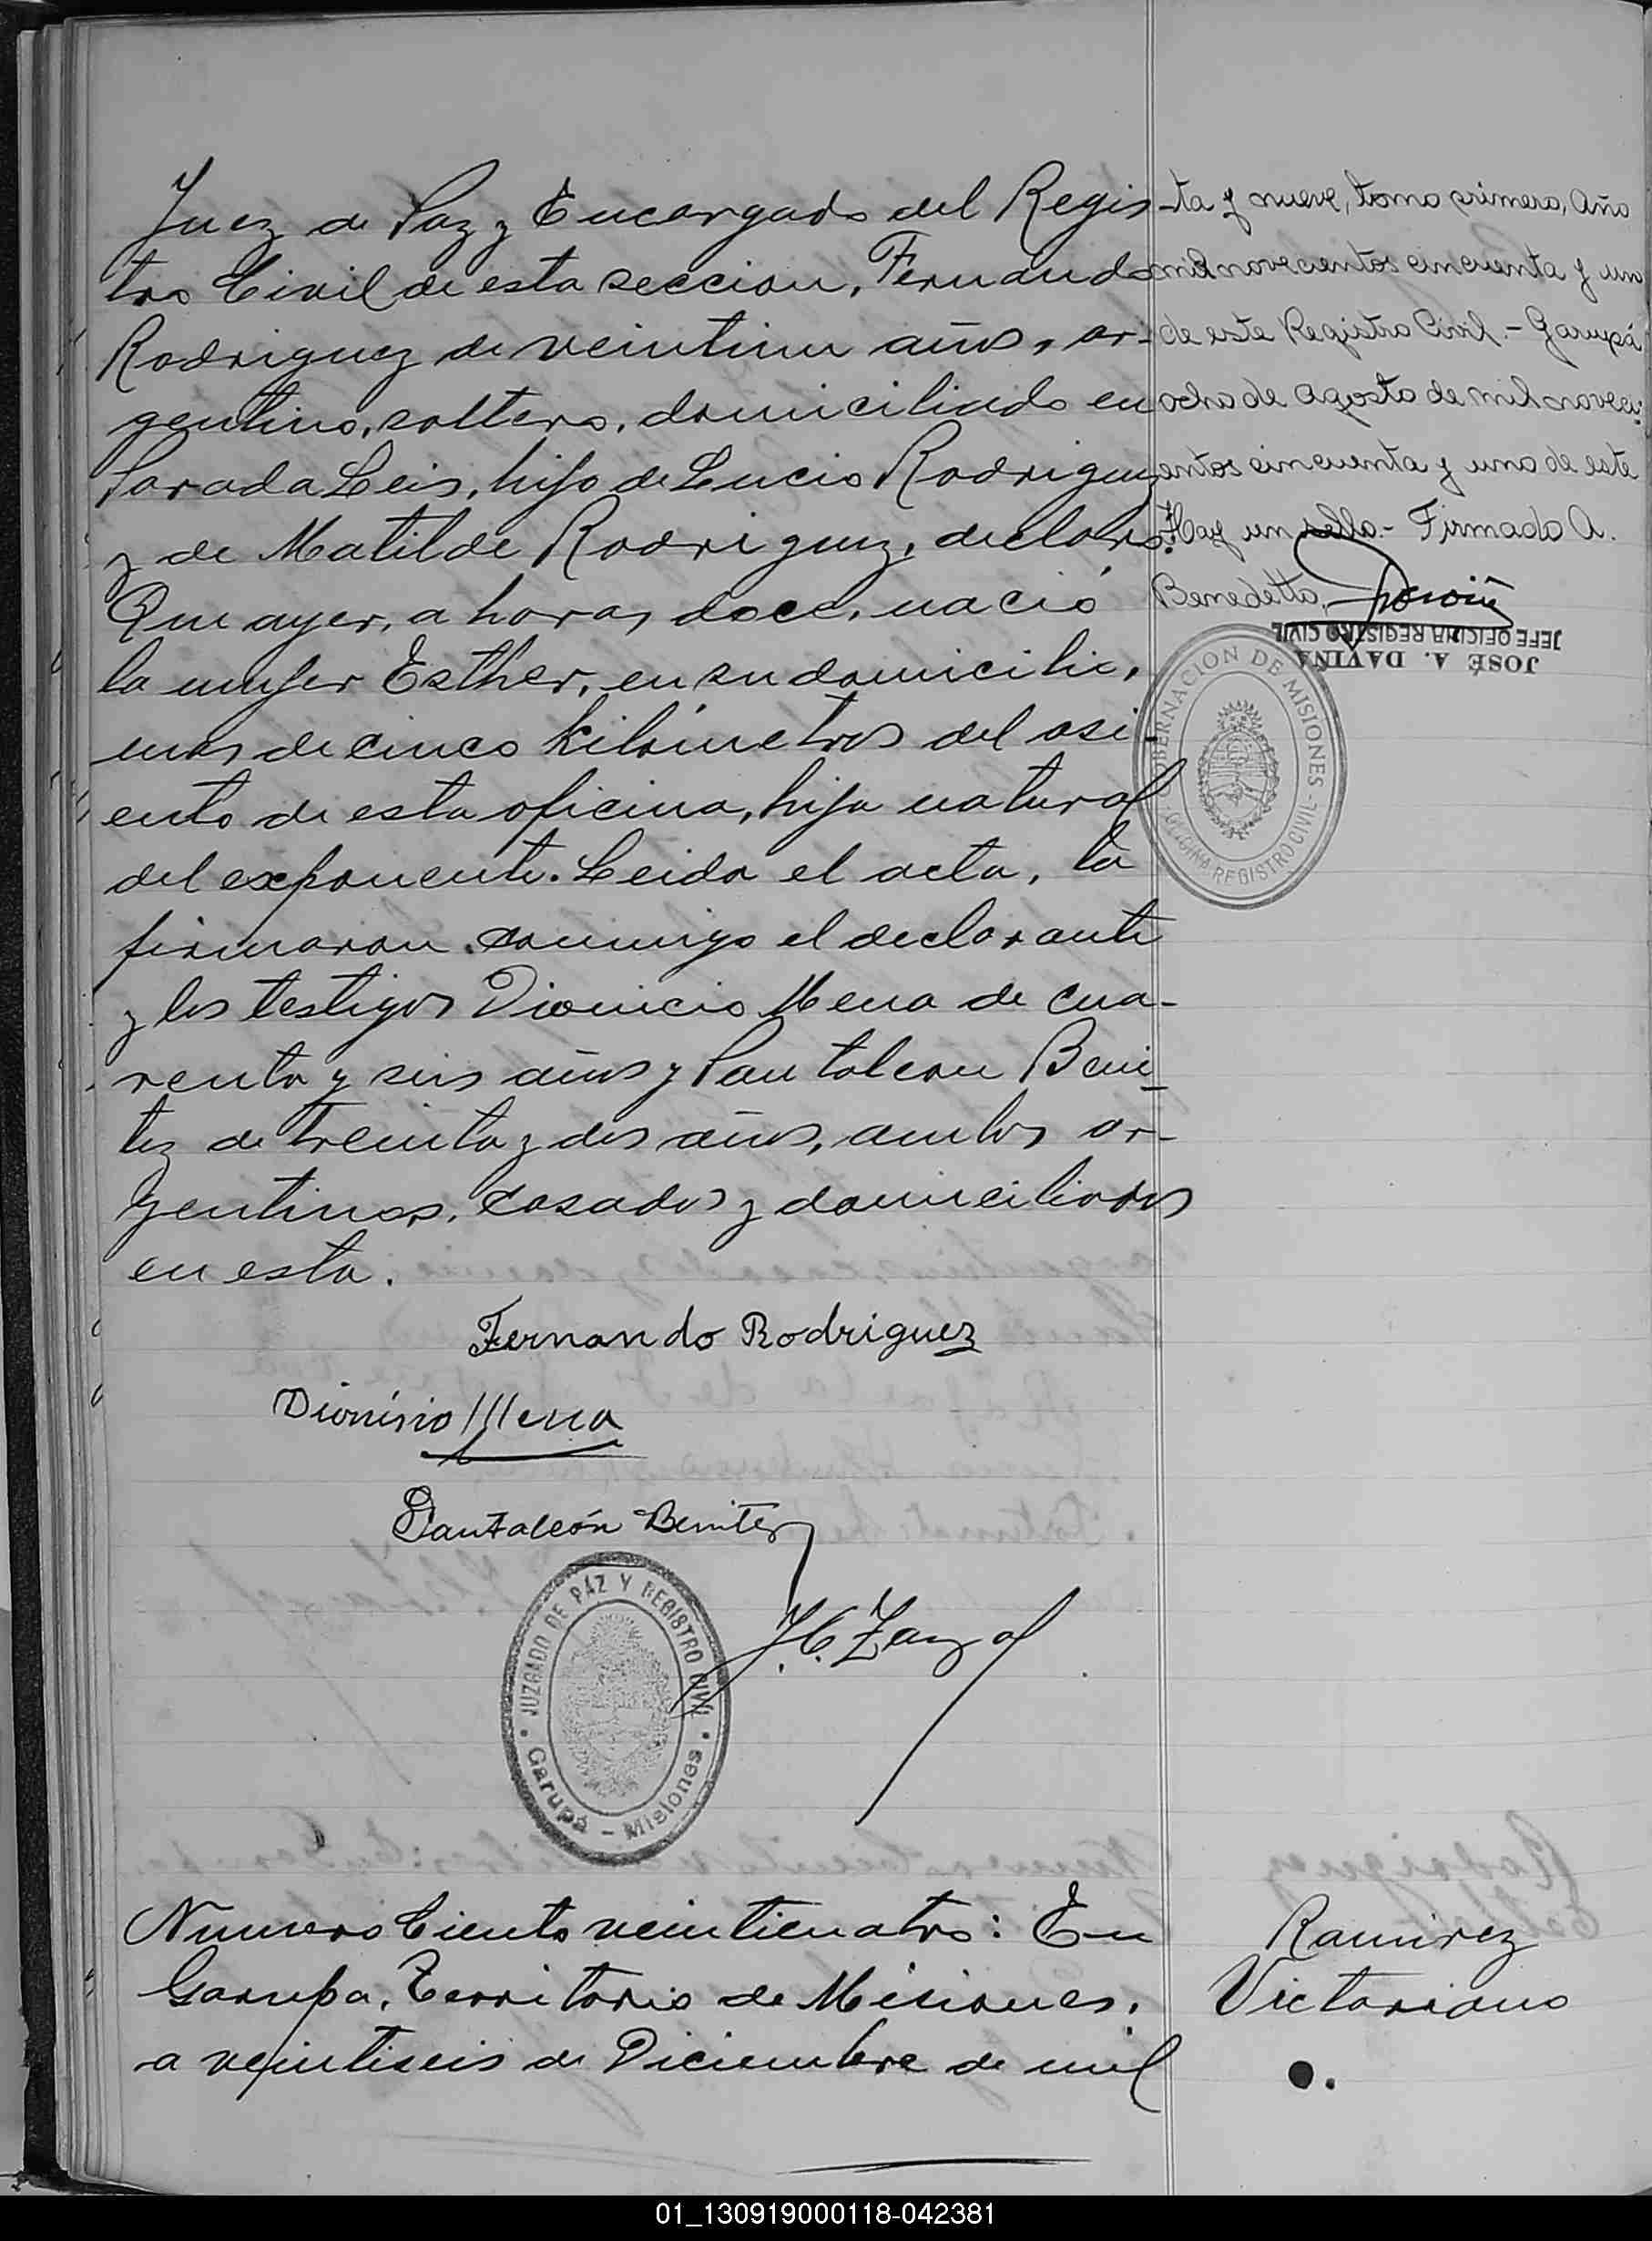 Juez de Paz y Encargado del Regis-
tro Civil de esta seccion, Fernando
Rodriguez de veintiun años, ar-
gentino, soltero, domiciliado en
Parada Leis, hijo de Lucio Rodriguez
y de Matilde Rodriguez, declaro:
Que ayer, a horas doce, nació
la mujer Esther, en su domicilio,
mas de cinco kilómetros del asi-
ento de esta oficina, hija natural
del exponente. Leida el acta, la
firmaron conmigo el declarante
y los testigos Dionicio Mena de cua-
renta y seis años y Pantaleon Beni-
tez de treinta y dos años, ambos ar-
gentinos, casados y domiciliados
en esta.
Fernando Rodriguez
Dionisio Mena
Pantaleón Benitez
JUZGADO DE PAZ Y REGISTRO CIVIL
Garupá - Misiones
Numero Ciento veinticuatro: En
Garupa, Territorio de Misiones,
a veintiseis de Diciembre de mil
-ta y nueve, tomo primero, año
mil novecientos cincuenta y uno
de este Registro Civil.- Garupá
ocho de agosto de mil noveci-
entos cincuenta y uno de este
Hay un sello.- Firmado A.
Benedetto.
JOSÉ A. DAVIÑA
JEFE OFICINA REGISTRO CIVIL
GOBERNACION DE MISIONES
OFICINA REGISTRO CIVIL
Ramirez
Victoriano
01_130919000118-042381